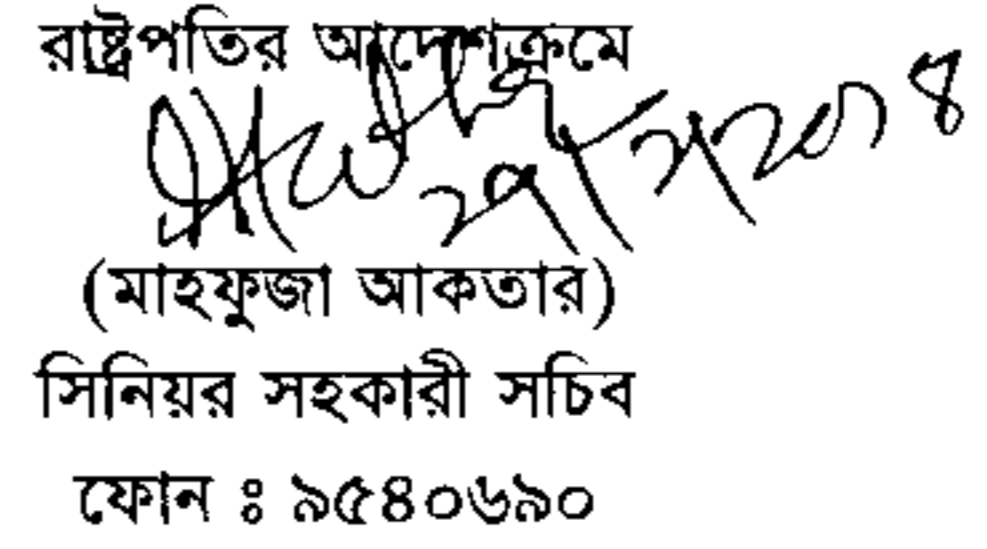 রাষ্ট্রপতির আদেশক্রমে
(মাহফুজা আকতার)
সিনিয়র সহকারী সচিব
ফোন ঃ ৯৫৪০৬৯০